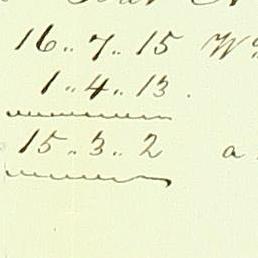 16.. 7.. 15
1.. 4.. 13.
15.. 3.. 2 a